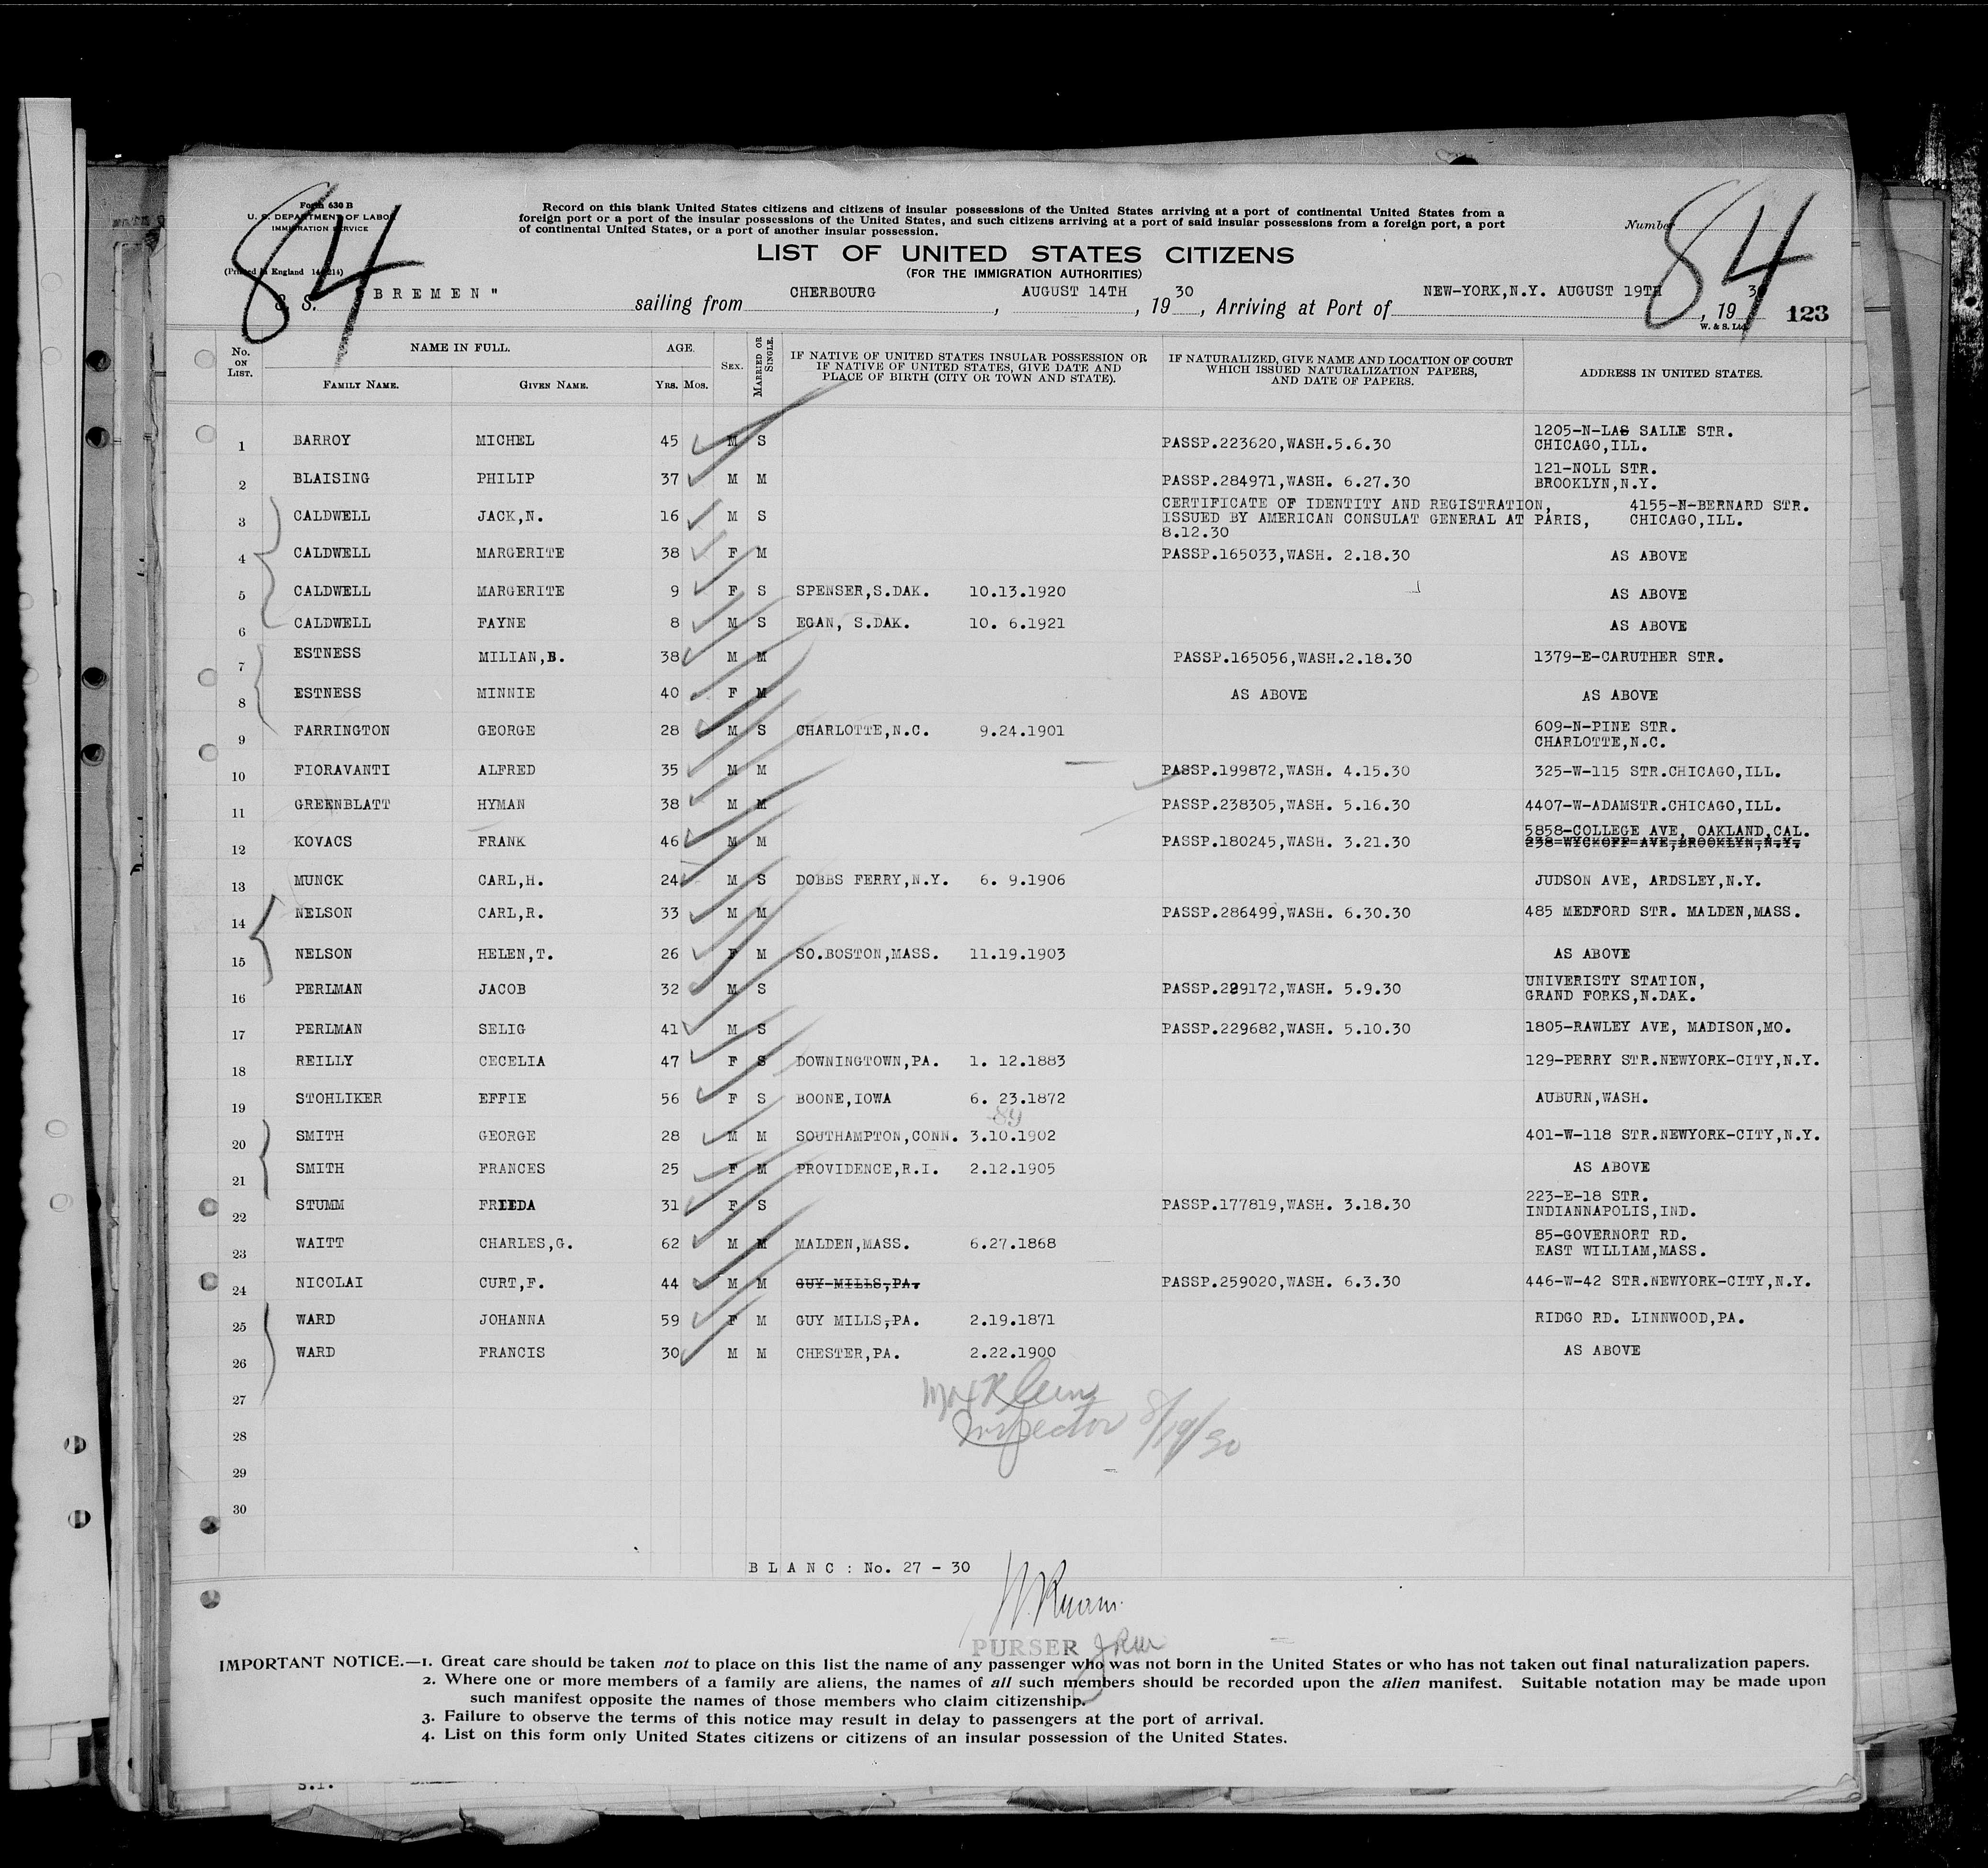 84
84
Form 630 B
U. S. DEPARTMENT OF LABOR
IMMIGRATION SERVICE
Record on this blank United States citizens and citizens of insular possessions of the United States arriving at a port of continental United States from a
foreign port or a port of the insular possessions of the United States, and such citizens arriving at a port of said insular possessions from a foreign port, a port
of continental United States, or a port of another insular possession.
Number
LIST OF UNITED STATES CITIZENS
(FOR THE IMMIGRATION AUTHORITIES)
S. S. BREMEN" sailing from CHERBOURG, AUGUST 14TH, 1930, Arriving at Port of NEW-YORK,N.Y. AUGUST 19TH, 1930
W. & S. Ltd.
123
No. ON LIST. NAME IN FULL. AGE. SEX. MARRIED OR SINGLE. IF NATIVE OF UNITED STATES INSULAR POSSESSION OR IF NATIVE OF UNITED STATES, GIVE DATE AND PLACE OF BIRTH (CITY OR TOWN AND STATE). IF NATURALIZED, GIVE NAME AND LOCATION OF COURT WHICH ISSUED NATURALIZATION PAPERS, AND DATE OF PAPERS. ADDRESS IN UNITED STATES.
FAMILY NAME. GIVEN NAME. YRS. MOS.
1 BARROY MICHEL 45 M S PASSP.223620,WASH.5.6.30 1205-N-LAS SALLE STR. CHICAGO,ILL.
2 BLAISING PHILIP 37 M M PASSP.284971,WASH. 6.27.30 121-NOLL STR. BROOKLYN,N.Y.
3 CALDWELL JACK,N. 16 M S CERTIFICATE OF IDENTITY AND REGISTRATION, ISSUED BY AMERICAN CONSULAT GENERAL AT PARIS, 8.12.30 4155-N-BERNARD STR. CHICAGO,ILL.
4 CALDWELL MARGERITE 38 F M PASSP.165033,WASH. 2.18.30 AS ABOVE
5 CALDWELL MARGERITE 9 F S SPENSER,S.DAK. 10.13.1920 AS ABOVE
6 CALDWELL FAYNE 8 M S EGAN, S.DAK. 10. 6.1921 AS ABOVE
7 ESTNESS MILIAN,B. 38 M M PASSP.165056,WASH.2.18.30 1379-E-CARUTHER STR.
8 ESTNESS MINNIE 40 F M AS ABOVE AS ABOVE
9 FARRINGTON GEORGE 28 M S CHARLOTTE,N.C. 9.24.1901 609-N-PINE STR. CHARLOTTE,N.C.
10 FIORAVANTI ALFRED 35 M M PASSP.199872,WASH. 4.15.30 325-W-115 STR.CHICAGO,ILL.
11 GREENBLATT HYMAN 38 M M PASSP.238305,WASH. 5.16.30 4407-W-ADAMSTR.CHICAGO,ILL.
12 KOVACS FRANK 46 M M PASSP.180245,WASH. 3.21.30 5858-COLLEGE AVE, OAKLAND,CAL. 238-WYCKOFF-AVE,BROOKLYN,N.Y.
13 MUNCK CARL,H. 24 M S DOBBS FERRY,N.Y. 6. 9.1906 JUDSON AVE, ARDSLEY,N.Y.
14 NELSON CARL,R. 33 M M PASSP.286499,WASH. 6.30.30 485 MEDFORD STR. MALDEN,MASS.
15 NELSON HELEN,T. 26 F M SO.BOSTON,MASS. 11.19.1903 AS ABOVE
16 PERLMAN JACOB 32 M S PASSP.229172,WASH. 5.9.30 UNIVERISTY STATION, GRAND FORKS,N.DAK.
17 PERLMAN SELIG 41 M S PASSP.229682,WASH. 5.10.30 1805-RAWLEY AVE, MADISON,MO.
18 REILLY CECELIA 47 F S DOWNINGTOWN,PA. 1. 12.1883 129-PERRY STR.NEWYORK-CITY,N.Y.
19 STOHLIKER EFFIE 56 F S BOONE,IOWA 6. 23.1872 AUBURN,WASH.
89
20 SMITH GEORGE 28 M M SOUTHAMPTON,CONN. 3.10.1902 401-W-118 STR.NEWYORK-CITY,N.Y.
21 SMITH FRANCES 25 F M PROVIDENCE,R.I. 2.12.1905 AS ABOVE
22 STUMM FRIEDA 31 F S PASSP.177819,WASH. 3.18.30 223-E-18 STR. INDIANNAPOLIS,IND.
23 WAITT CHARLES,G. 62 M M MALDEN,MASS. 6.27.1868 85-GOVERNORT RD. EAST WILLIAM,MASS.
24 NICOLAI CURT,F. 44 M M GUY-MILLS,PA, PASSP.259020,WASH. 6.3.30 446-W-42 STR.NEWYORK-CITY,N.Y.
25 WARD JOHANNA 59 F M GUY MILLS,PA. 2.19.1871 RIDGO RD. LINNWOOD,PA.
26 WARD FRANCIS 30 M M CHESTER,PA. 2.22.1900 AS ABOVE
27
Inspector 8/19/30
28
29
30
BLANC: No. 27 - 30
PURSER
IMPORTANT NOTICE.—1. Great care should be taken not to place on this list the name of any passenger who was not born in the United States or who has not taken out final naturalization papers.
2. Where one or more members of a family are aliens, the names of all such members should be recorded upon the alien manifest. Suitable notation may be made upon
such manifest opposite the names of those members who claim citizenship.
3. Failure to observe the terms of this notice may result in delay to passengers at the port of arrival.
4. List on this form only United States citizens or citizens of an insular possession of the United States.